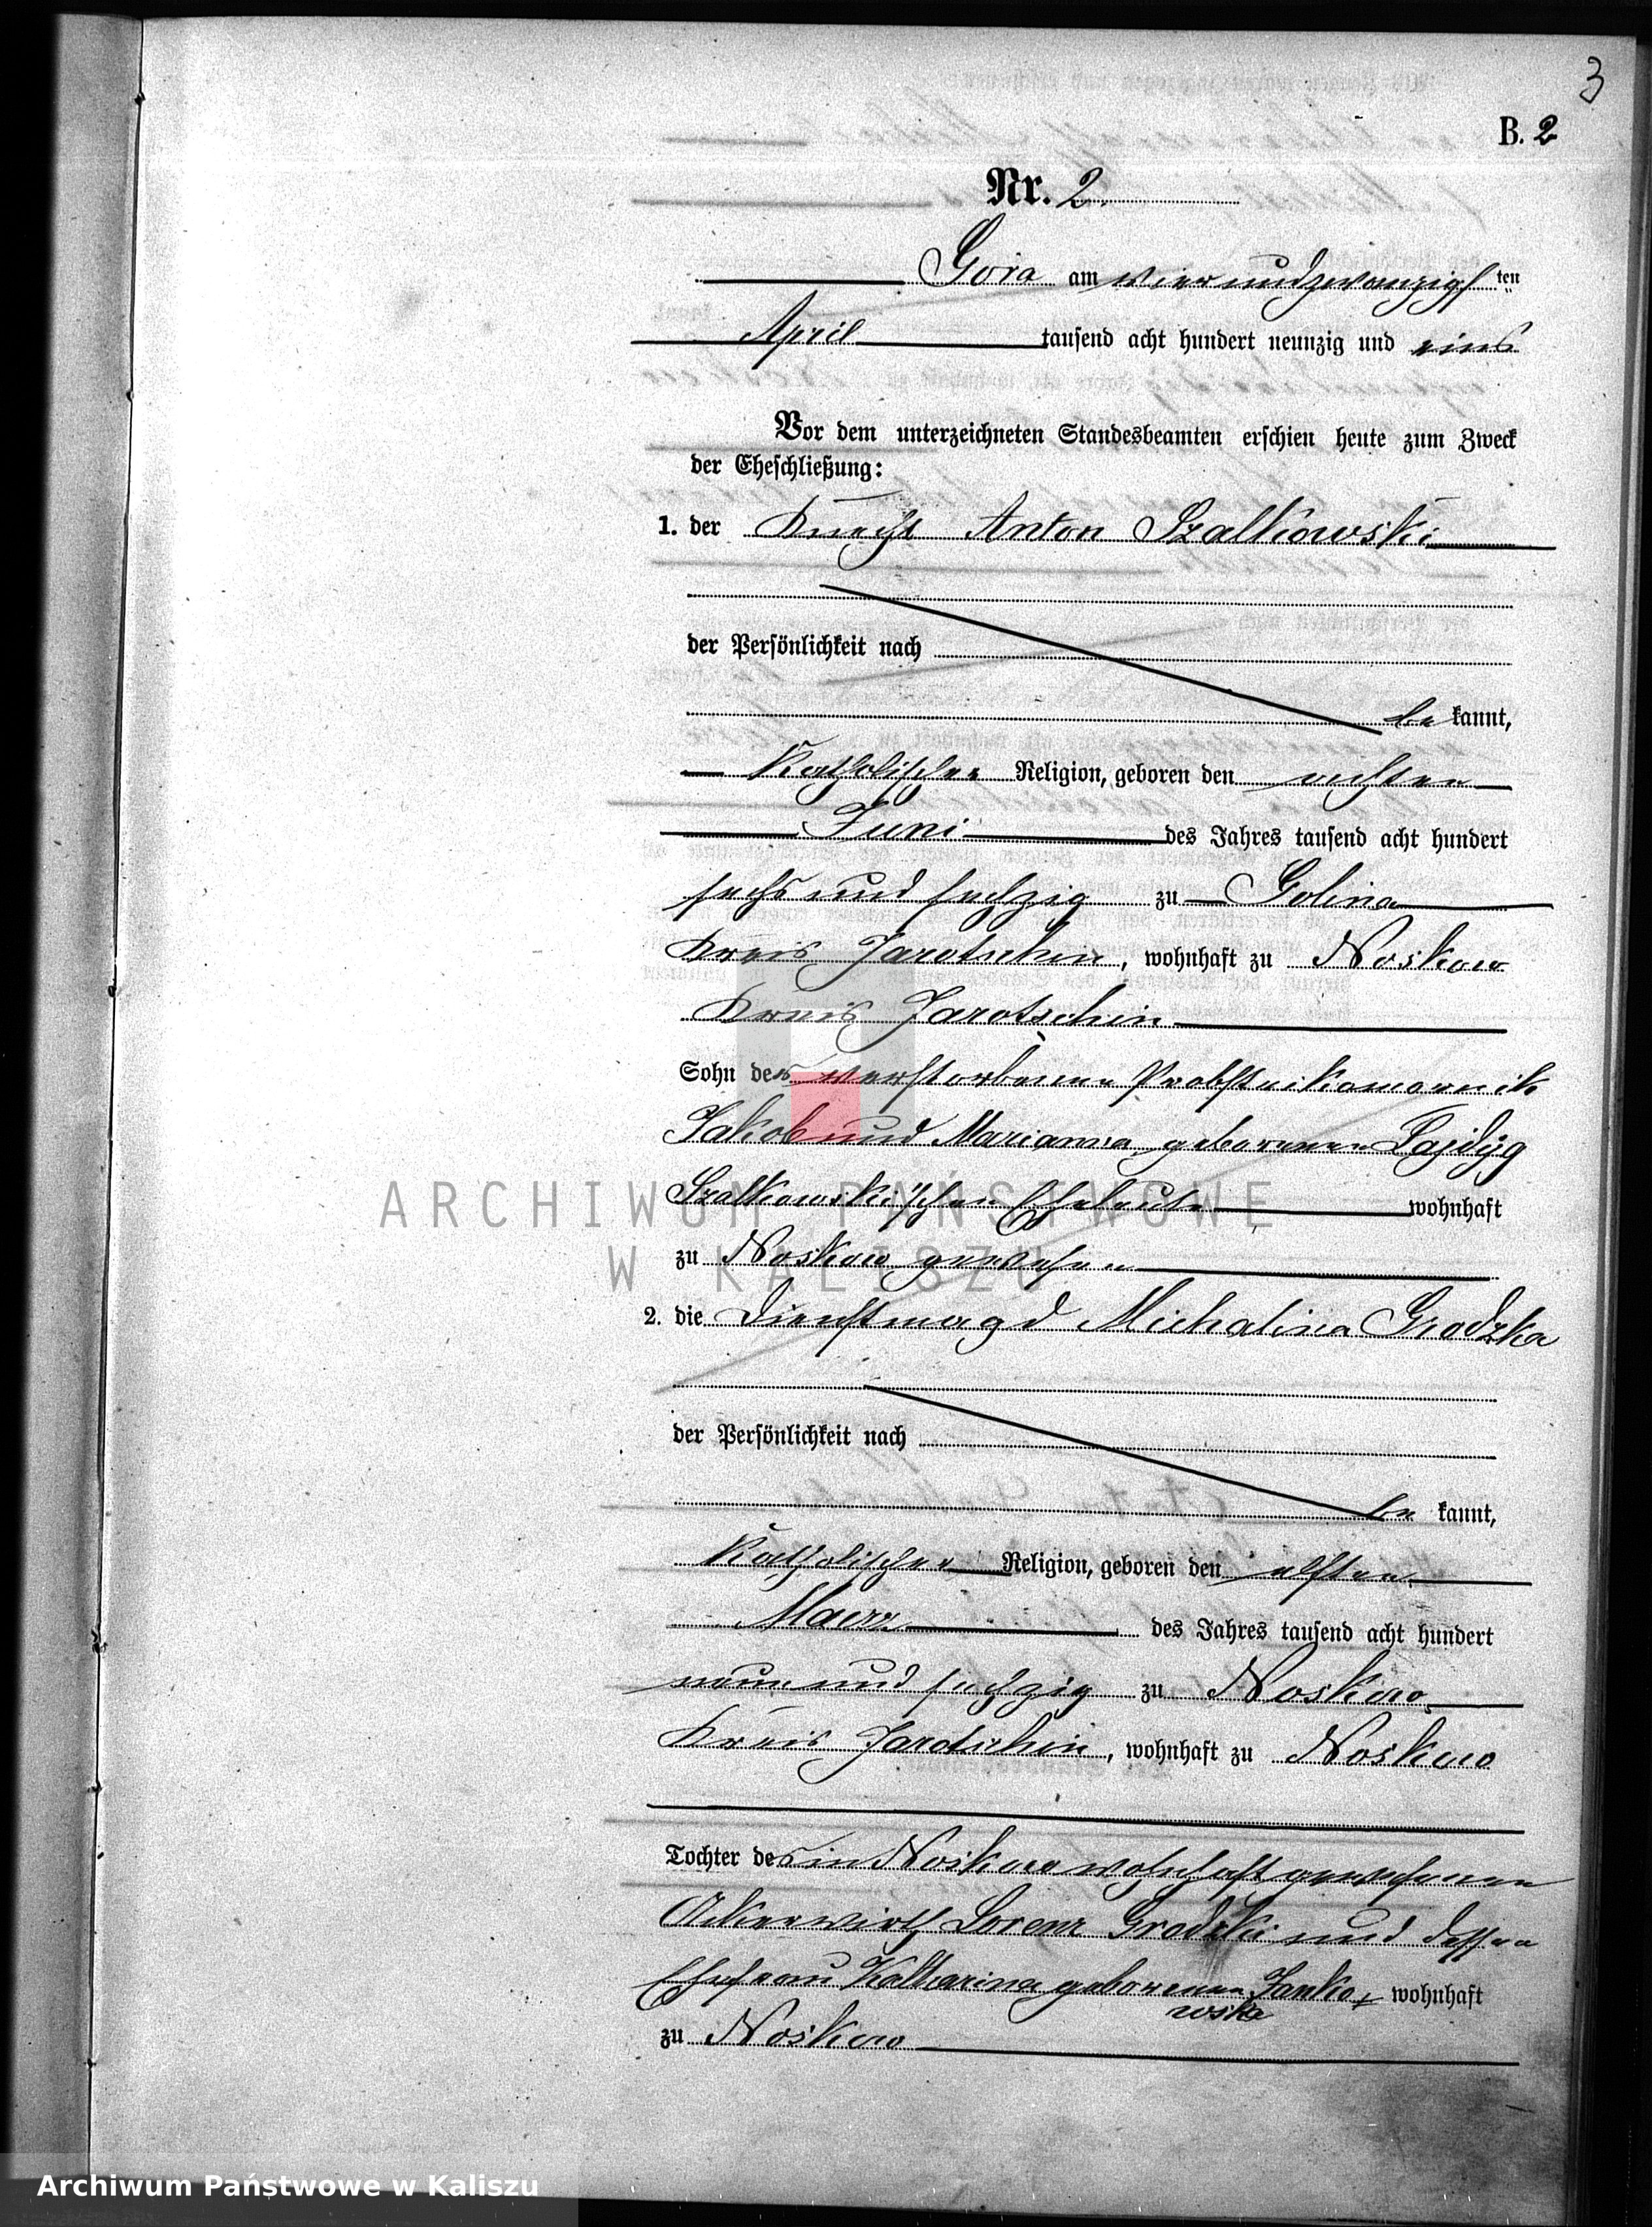 3
B. 2
Nr. 2.
Gora am vierundzwanzigsten
April tausend acht hundert neunzig und eins
Vor dem unterzeichneten Standesbeamten erschien heute zum Zweck
der Eheschließung:
1. der Knecht Anton Szalkowski
der Persönlichkeit nach
be kannt,
Katholischer Religion, geboren den achten
Juni des Jahres tausend acht hundert
sechs und sechzig zu Golina
Kreis Jarotschin, wohnhaft zu Noskow
Kreis Jarotschin
Sohn der verstorbenen Probsteikomornik
Jakob und Marianna geborenen
Szalkowski'schen Eheleute wohnhaft
zu Noskow gewesen
2. die Dienstmagd Michalina Grodzka
der Persönlichkeit nach
be kannt,
Katholischer Religion, geboren den elften
Maerz des Jahres tausend acht hundert
neun und sechzig zu Noskow
Kreis Jarotschin, wohnhaft zu Noskow
Tochter des in Noskow wohnhaft gewesenen
Ackerwirth Lorenz Grodzki und dessen
Ehefrau Katharina geborenen Janko- wohnhaft
wska
zu Noskow
ARCHIWUM PAŃSTWOWE
W KALISZU
Archiwum Państwowe w Kaliszu